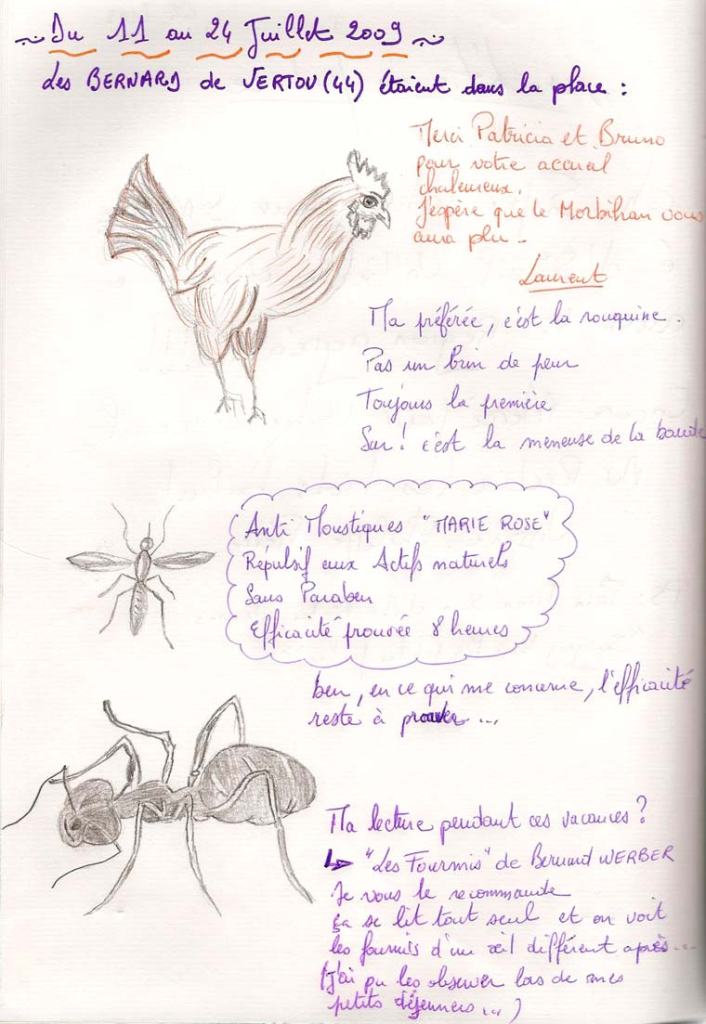 ~ Du 11 au 24 Juillet 2009 ~
Les BERNARD de VERTOU (44) étaient dans la place :
Merci Patricia et Bruno
pour votre accueil
chaleureux.
J'espère que le Morbihan vous
aura plu.
Laurent
Ma préférée, c'est la rouquine.
Pas un brin de peur
Toujours la première
Sur ! c'est la meneuse de la bande
Anti Moustiques "MARIE ROSE"
Répulsif aux Actifs naturels
Sans Paraben
Efficacité prouvée 8 heures
ben, en ce qui me concerne, l'efficacité
reste à prouver ...
Ma lecture pendant ces vacances ?
↳ "Les Fourmis" de Bernard WERBER
Je vous le recommande
ça se lit tout seul et on voit
les fourmis d'un œil différent après...
(j'ai pu les observer lors de mes
petits déjeuners ...)